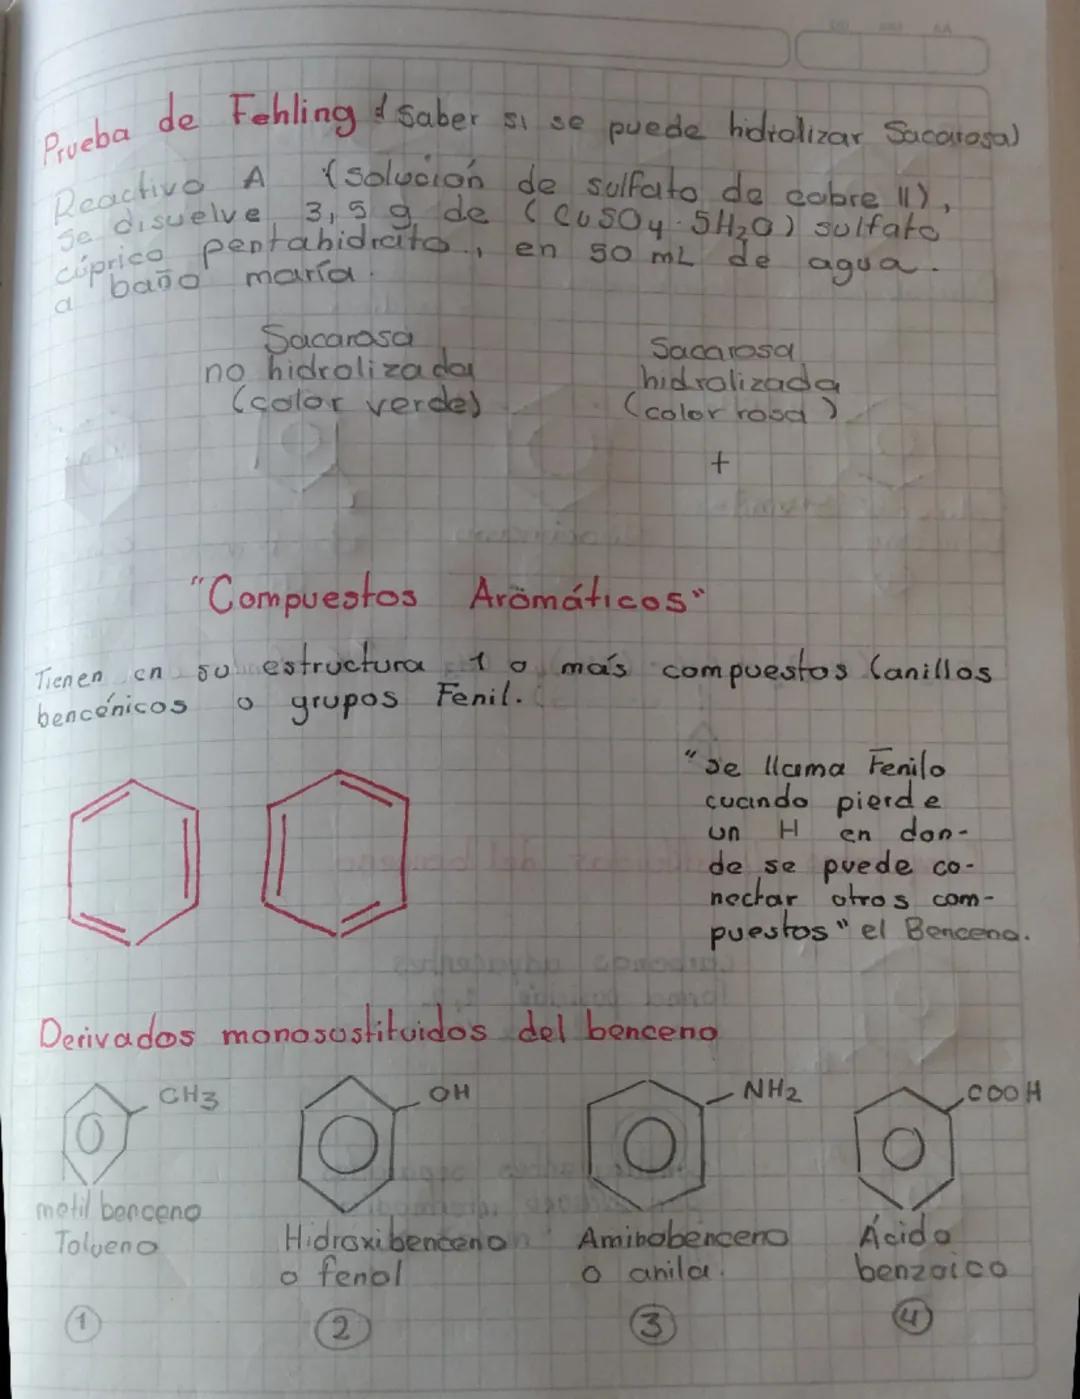 Prueba de Fehling (saber si se puede hidrolizar Sacarosa)
Reactivo A (solución de sulfato de cobre II),
se disuelve 3,5 g de (CuSO4·5H2O) sulfato
cúprico pentahidrato, en 50 mL de agua.
a baño maría.
Sacarosa
no hidrolizada
(color verde)
Sacarosa
hidrolizada
(color rosa)
+
"Compuestos Aromáticos"
Tienen en su estructura 1 o más compuestos (anillos
bencénicos o grupos Fenil.
"se llama Fenilo
cuando pierde
un H en don-
de se puede co-
nectar otros com-
puestos" el Benceno.
Derivados monosustituidos del benceno
CH3
OH
NH2
COOH
metil benceno
Tolueno
Hidroxibenceno
o fenol
Aminobenceno
o anila.
Ácido
benzoico
1
2
3
4